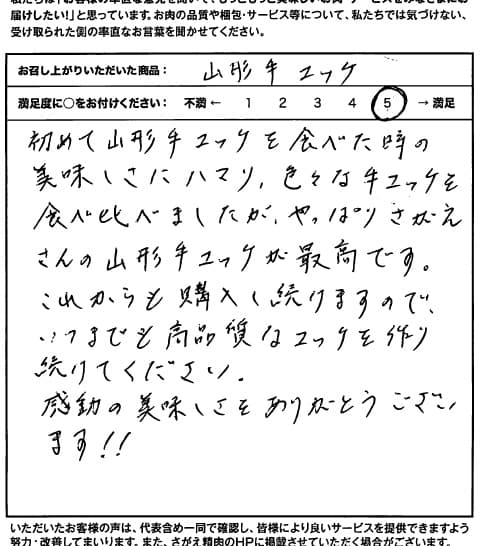 届けしたい!」と思っています。お肉の品質や梱包・サービス等について、私たちでは気づけない、
受け取られた側の率直なお言葉を聞かせてください。
お召し上がりいただいた商品： 山形牛ユッケ
満足度に○をお付けください： 不満 ← 1 2 3 4 5 → 満足
初めて山形牛ユッケを食べた時の
美味しさにハマり、色々な牛ユッケを
食べ比べましたが、やっぱりさがえ
さんの山形牛ユッケが最高です。
これからも購入し続けますので、
いつまでも高品質なユッケを作り
続けてください。
感動の美味しさをありがとうござい
ます!!
いただいたお客様の声は、代表含め一同で確認し、皆様により良いサービスを提供できますよう
努力・改善してまいります。また、さがえ精肉のHPに掲載させていただく場合がございます。